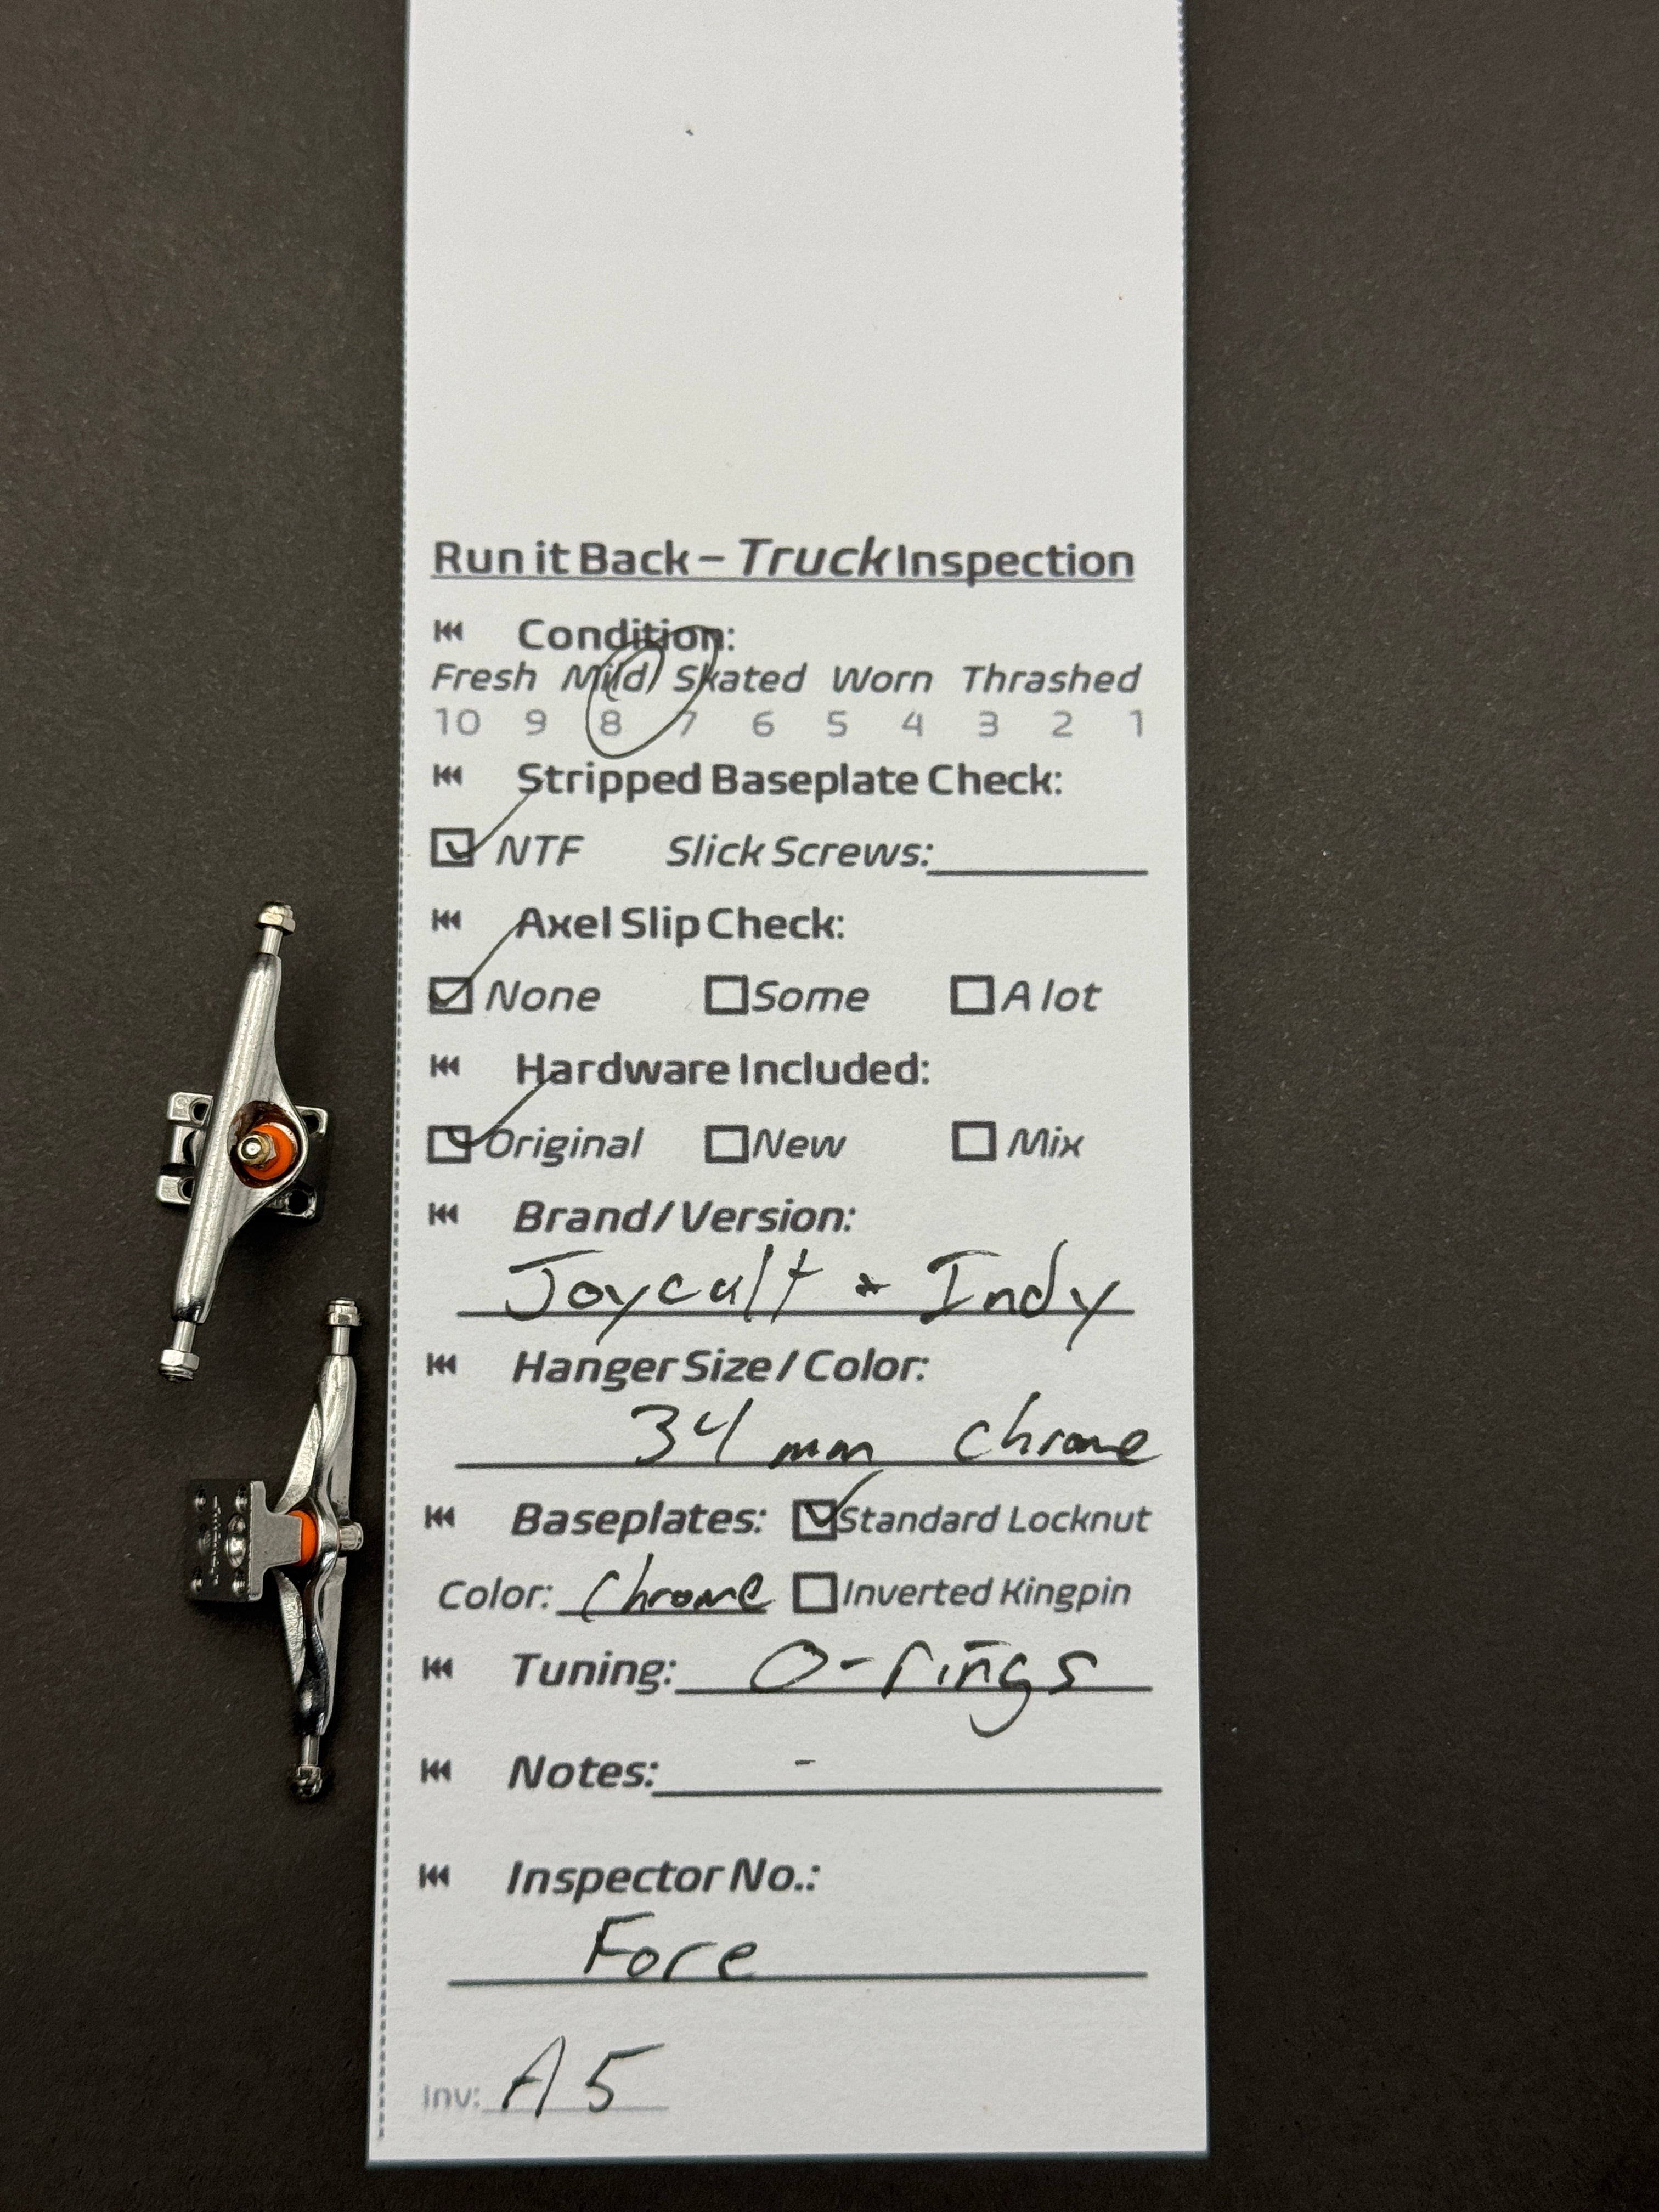 Run it Back – Truck Inspection
Condition:
Fresh Mild Skated Worn Thrashed
10 9 8 7 6 5 4 3 2 1
Stripped Baseplate Check:
NTF Slick Screws:
Axel Slip Check:
None Some A lot
Hardware Included:
Original New Mix
Brand / Version:
Joycult * Indy
Hanger Size / Color:
34 mm chrome
Baseplates: Standard Locknut
Color: Chrome Inverted Kingpin
Tuning: O-rings
Notes: -
Inspector No.:
Fore
Inv: A5